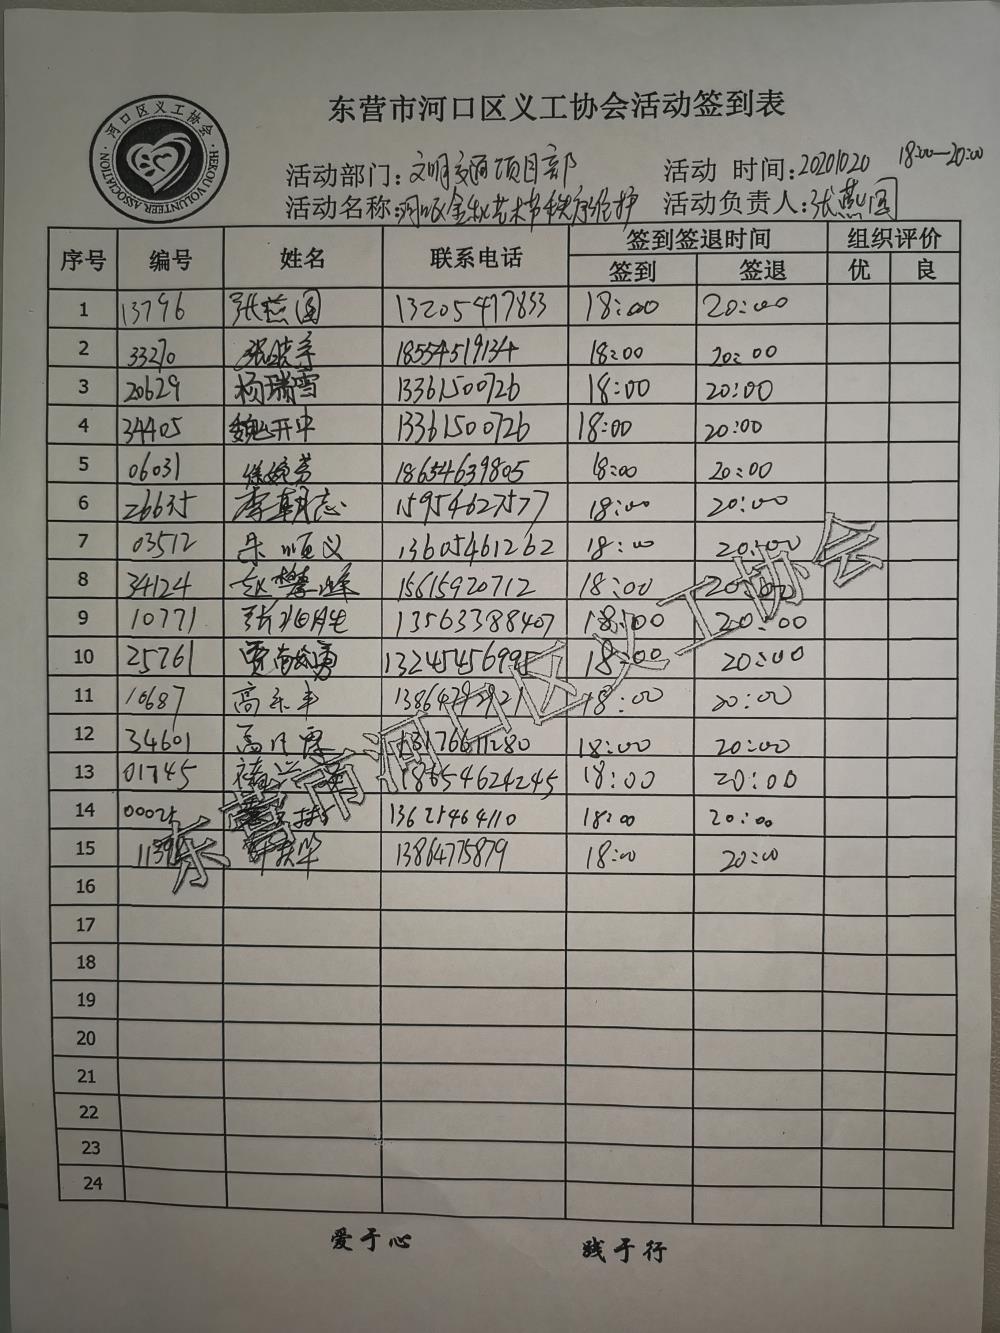 东营市河口区义工协会活动签到表
河口区义工协会
HEKOU VOLUNTEER ASSOCIATION
活动部门：文明交通项目部 活动 时间：20201020 18:00—20:00
活动名称：河口区金秋艺术节秩序维护 活动负责人：张燕国
序号 编号 姓名 联系电话 签到签退时间 组织评价
签到 签退 优 良
1 13796 张燕国 13205477833 18:00 20:00
2 33270 18554519134 18:00 20:00
3 20629 杨瑞雪 13361500726 18:00 20:00
4 34405 魏开中 13361500726 18:00 20:00
5 06031 18654639805 18:00 20:00
6 26635 李朝志 15954627577 18:00 20:00
7 03512 朱顺义 13605461262 18:00 20:00
8 34124 赵攀峰 15615920712 18:00 20:00
9 10771 13563388407 18:00 20:00
10 25761 13245456995 18:00 20:00
11 10687 高乐丰 18:00 20:00
12 34601 18:00 20:00
13 01745 18654624245 18:00 20:00
14 13625464110 18:00 20:00
15 13864775879 18:00 20:00
16
17
18
19
20
21
22
23
24
东营市河口区义工协会
爱于心 践于行